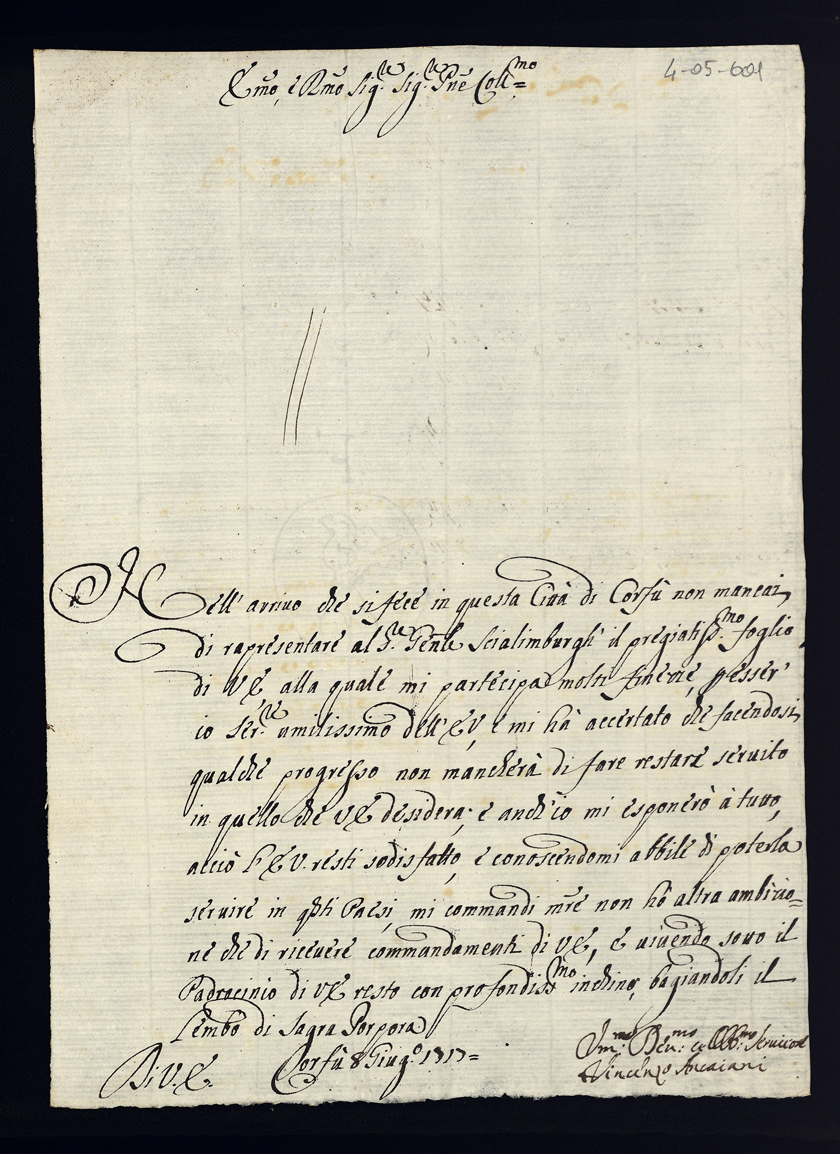 4-05-601
Emo, e Rmo Sig.re Sig.re Pne Coll.mo =
Nell' arrivo che si fece in questa Città di Corfù non mancai
di rapresentare al S.re Genle Scialimburgh il pregiatiss.mo foglio
di V E alla quale mi partecipa molti finezze, p esser'
io Ser.re umilissimo dell' E V, e mi hà accertato che facendosi
qualche progresso non mancherà di fare restare servito
in quello che V E desidera; e anch'io mi esponerò à tutto,
acciò l' E V. resti sodisfatto, e conoscendomi abbile di poterla
servire in qsti Paesi, mi commandi mre non hò altra ambitio=
ne che di ricevere commandamenti di V E, e vivendo sotto il
Padrocinio di V E resto con profondiss.mo inchino, bagiandoli il
Lembo di Sagra Porpora
Di V. E. Corfù 8 Giug.o 1717 =
Um.mo Dev.mo et Obb.mo Servitore
Vincenzo Ancaiani